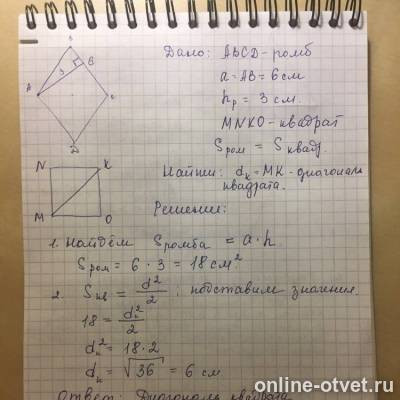 Дано: ABCD-ромб
a = AB = 6 см
hр = 3 см.
MNKO - квадрат
Sром = Sквадр.
Найти: dк = MK - диагональ
квадрата.
Решение:
B
3
A
C
D
N
K
M
O
1. Найдём Sромба = a·h.
Sром = 6 · 3 = 18 см²
2. Sкв = d²/2 ; подставим значения.
18 = dк²/2
dк² = 18·2
dк = √36 = 6 см
Ответ: Диагональ квадрата
online-otvet.ru